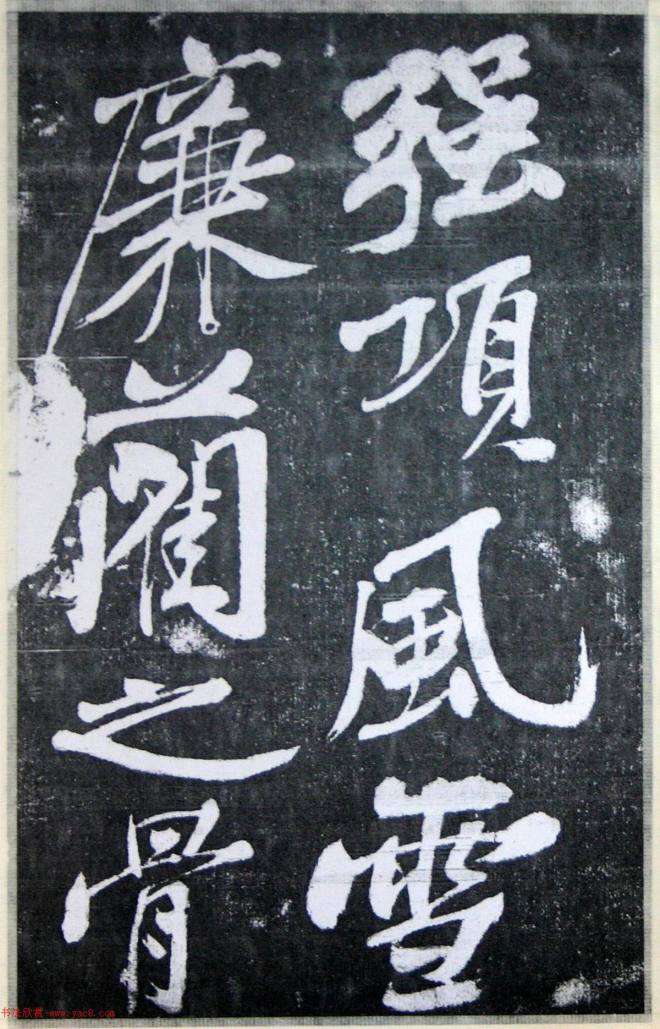 强項風雪
廉藺之骨
书法欣赏-www.yac8.com